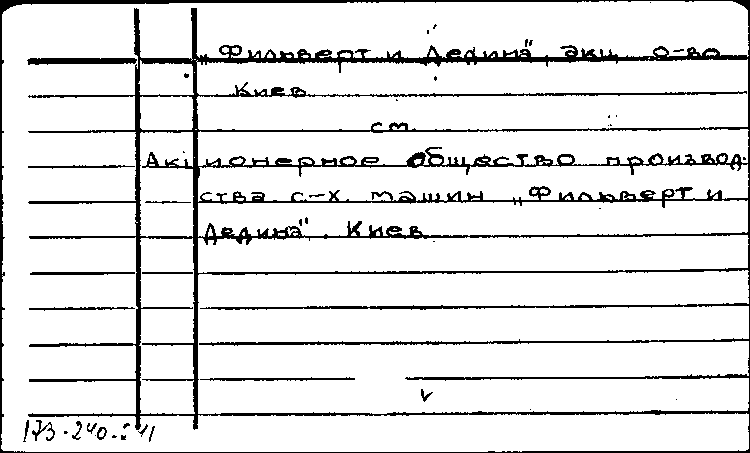 „Фильверт и Дедина", акц. о-во
Киев
см.
Акционерное общество производ-
ства с-х. машин „Фильверт и
Дедина". Киев
v